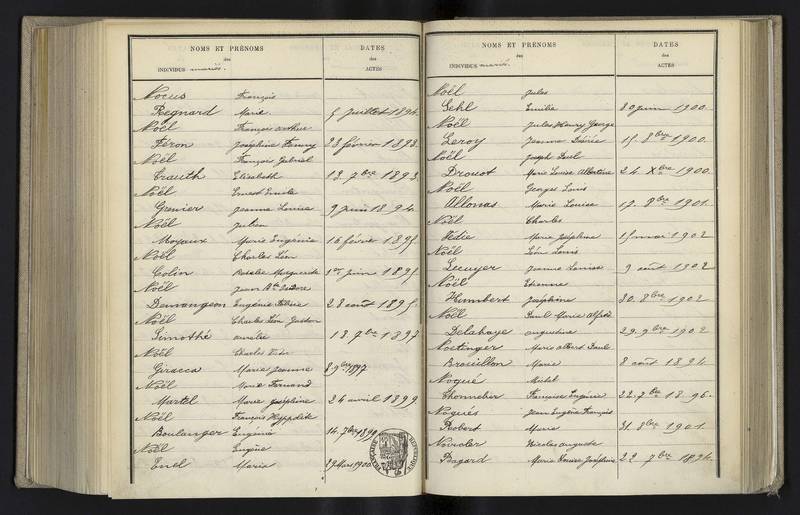 NOMS ET PRÉNOMS
des
INDIVIDUS mariés.
DATES
des
ACTES
Nocus François
Regnard Marie 5 Juillet 1894
Noël François Arthur
Féron Joséphine Fanny 28 février 1893
Noël François Gabriel
Crauth Elisabeth 13 7bre 1893
Noël Ernest Emile
Grenier Jeanne Louise 9 juin 1894
Noël Julien
Moyaux Marie Eugénie 16 février 1895
Noël Charles Léon
Colin Rosalie Marguerite 1er juin 1895
Noël Jean Bte Isidore
Demangeon Eugénie 28 août 1895
Noël Charles Léon Gaston
Simothé Amélie 18 9bre 1897
Noël Charles
Giracca Marie Jeanne 8 9bre 1897
Noël Marie Fernand
Martel Marie Joséphine 24 avril 1899
Noël François Hyppolite
Boulanger Eugénie 14 7bre 1899
Noël Eugène
Enel Maria 29 Mars 1900
NOMS ET PRÉNOMS
des
INDIVIDUS mariés.
DATES
des
ACTES
Noël Jules
Gehl Emilie 30 juin 1900.
Noël Jules Henry George
Leroy Jeanne Désirée 15 8bre 1900.
Noël Joseph Paul
Drouot Marie Louise Albertine 24 Xbre 1900.
Noël Georges Louis
Allonas Marie Louise 19 8bre 1901.
Noël Charles
Hédie Marie Joséphine 15 mai 1902
Noël Léon Louis
Lecuyer Jeanne Louise 9 août 1902
Noël Etienne
Humbert Joséphine 30 8bre 1902
Noël Paul Marie Alfred
Delahaye Augustine 29 9bre 1902
Noetinger Marie Albert Paul
Brouillon Marie 8 août 1894
Nogué Michel
Thonnelier Françoise Eugénie 22 7bre 1896.
Noguès Jean Eugène François
Robert Marie 31 8bre 1901.
Noircler Nicolas Auguste
Bagard Marie Louise Joséphine 22 7bre 1894.